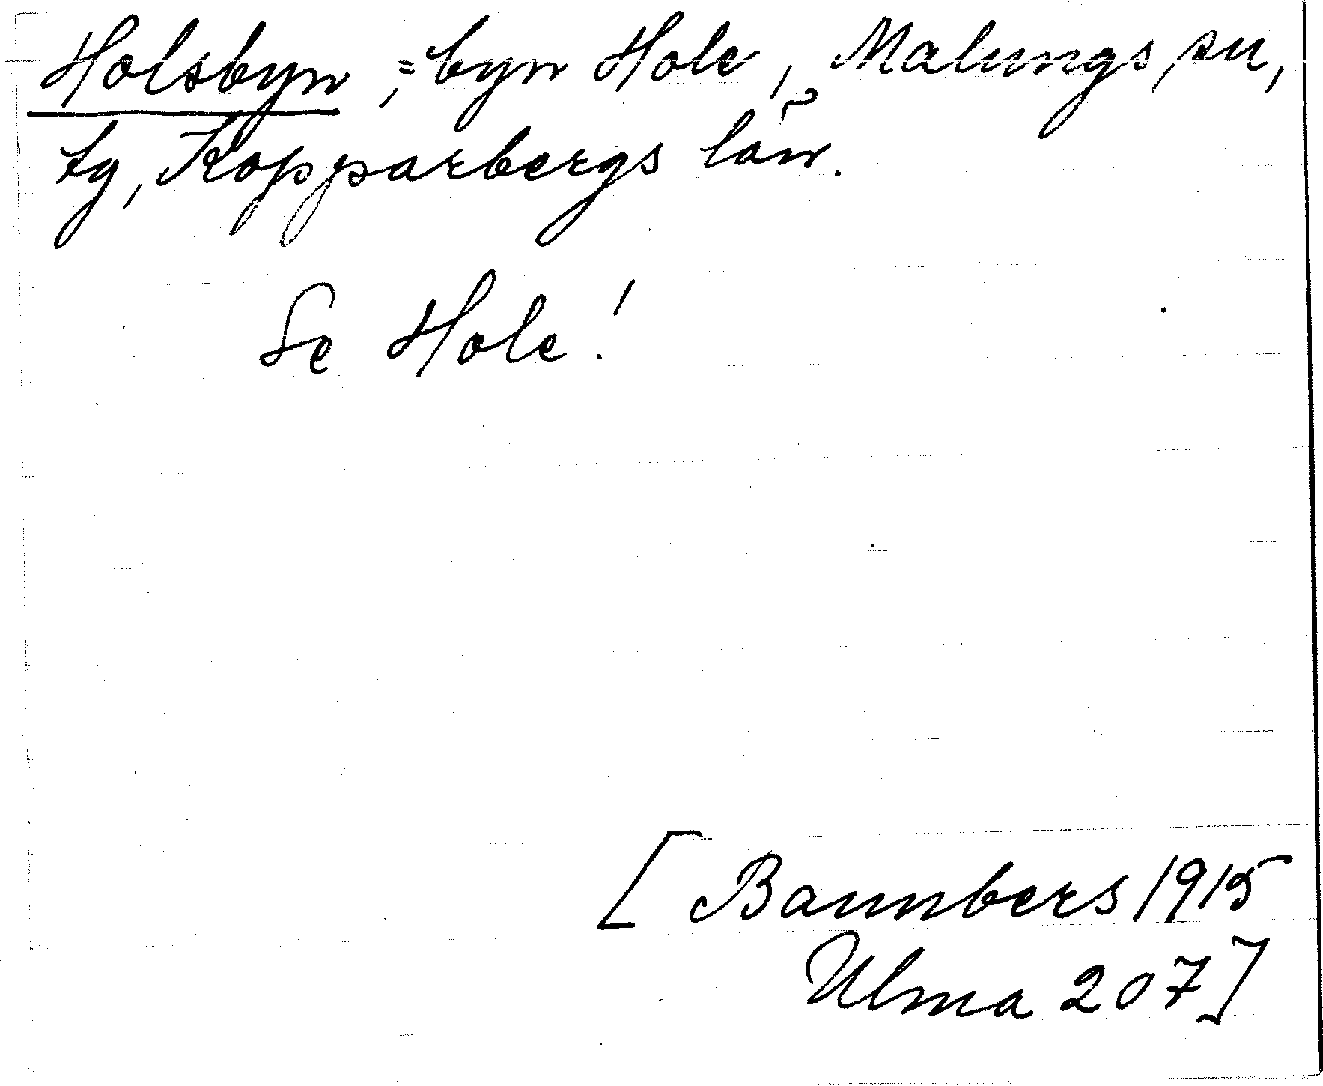 Holsbyn, = byn Hole, Malungs sn,
tg, Kopparbergs län.
Se Hole!
[Bannbers 1915
Ulma 207]